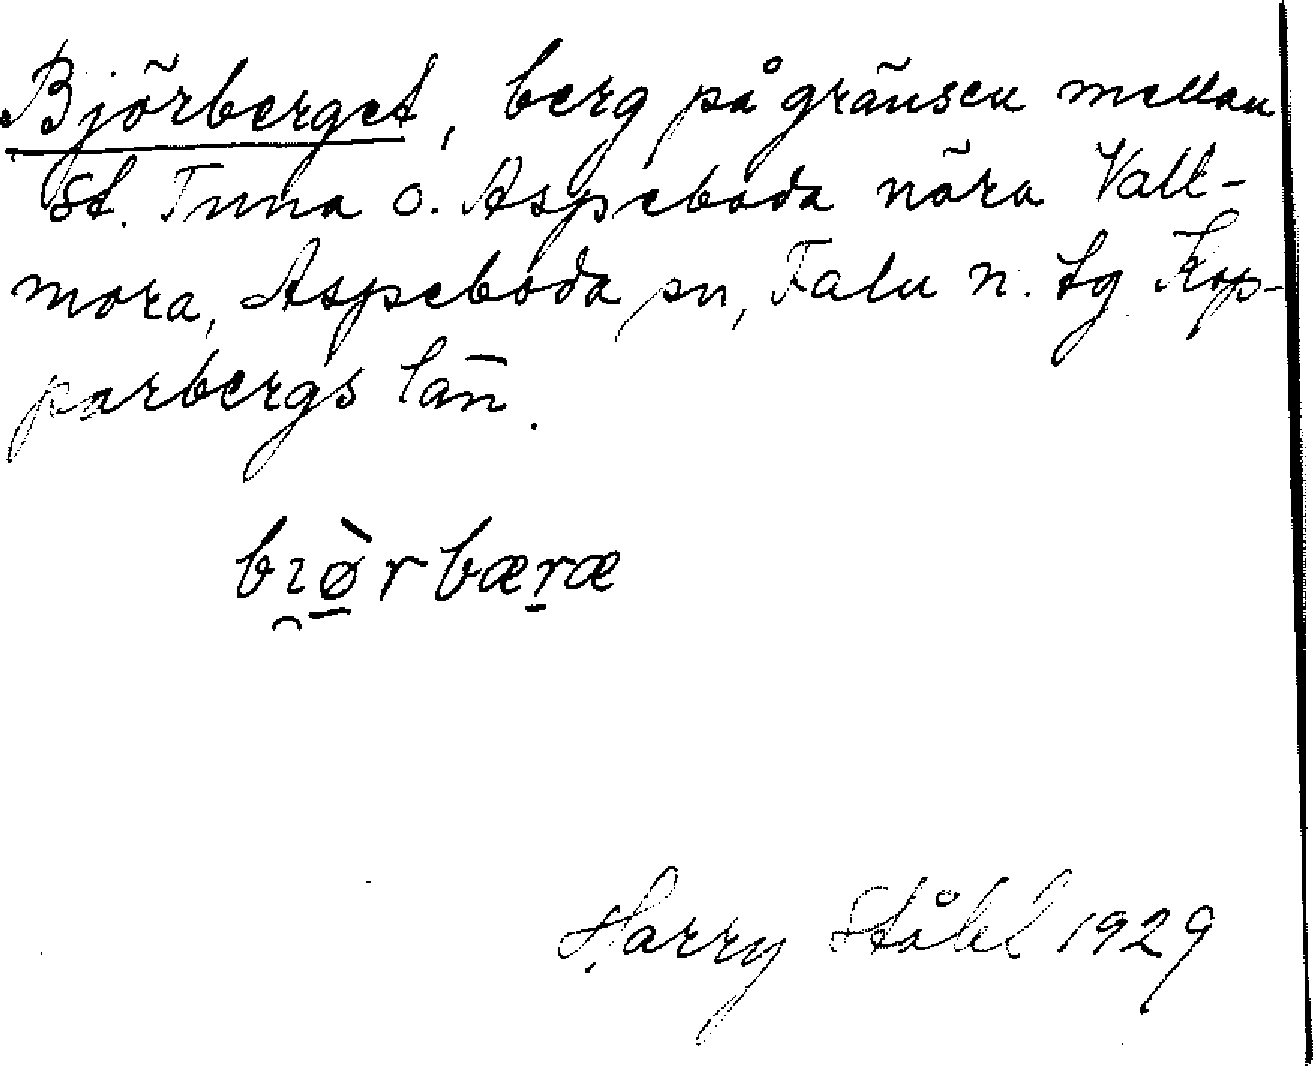 Björberget, berg på gränsen mellan
St. Tuna o. Aspeboda nära Vall-
mora, Aspeboda sn, Falu n. tg Kop-
parbergs län.
bı̯ø̠̀rbæṟæ
Harry Ståhl 1929